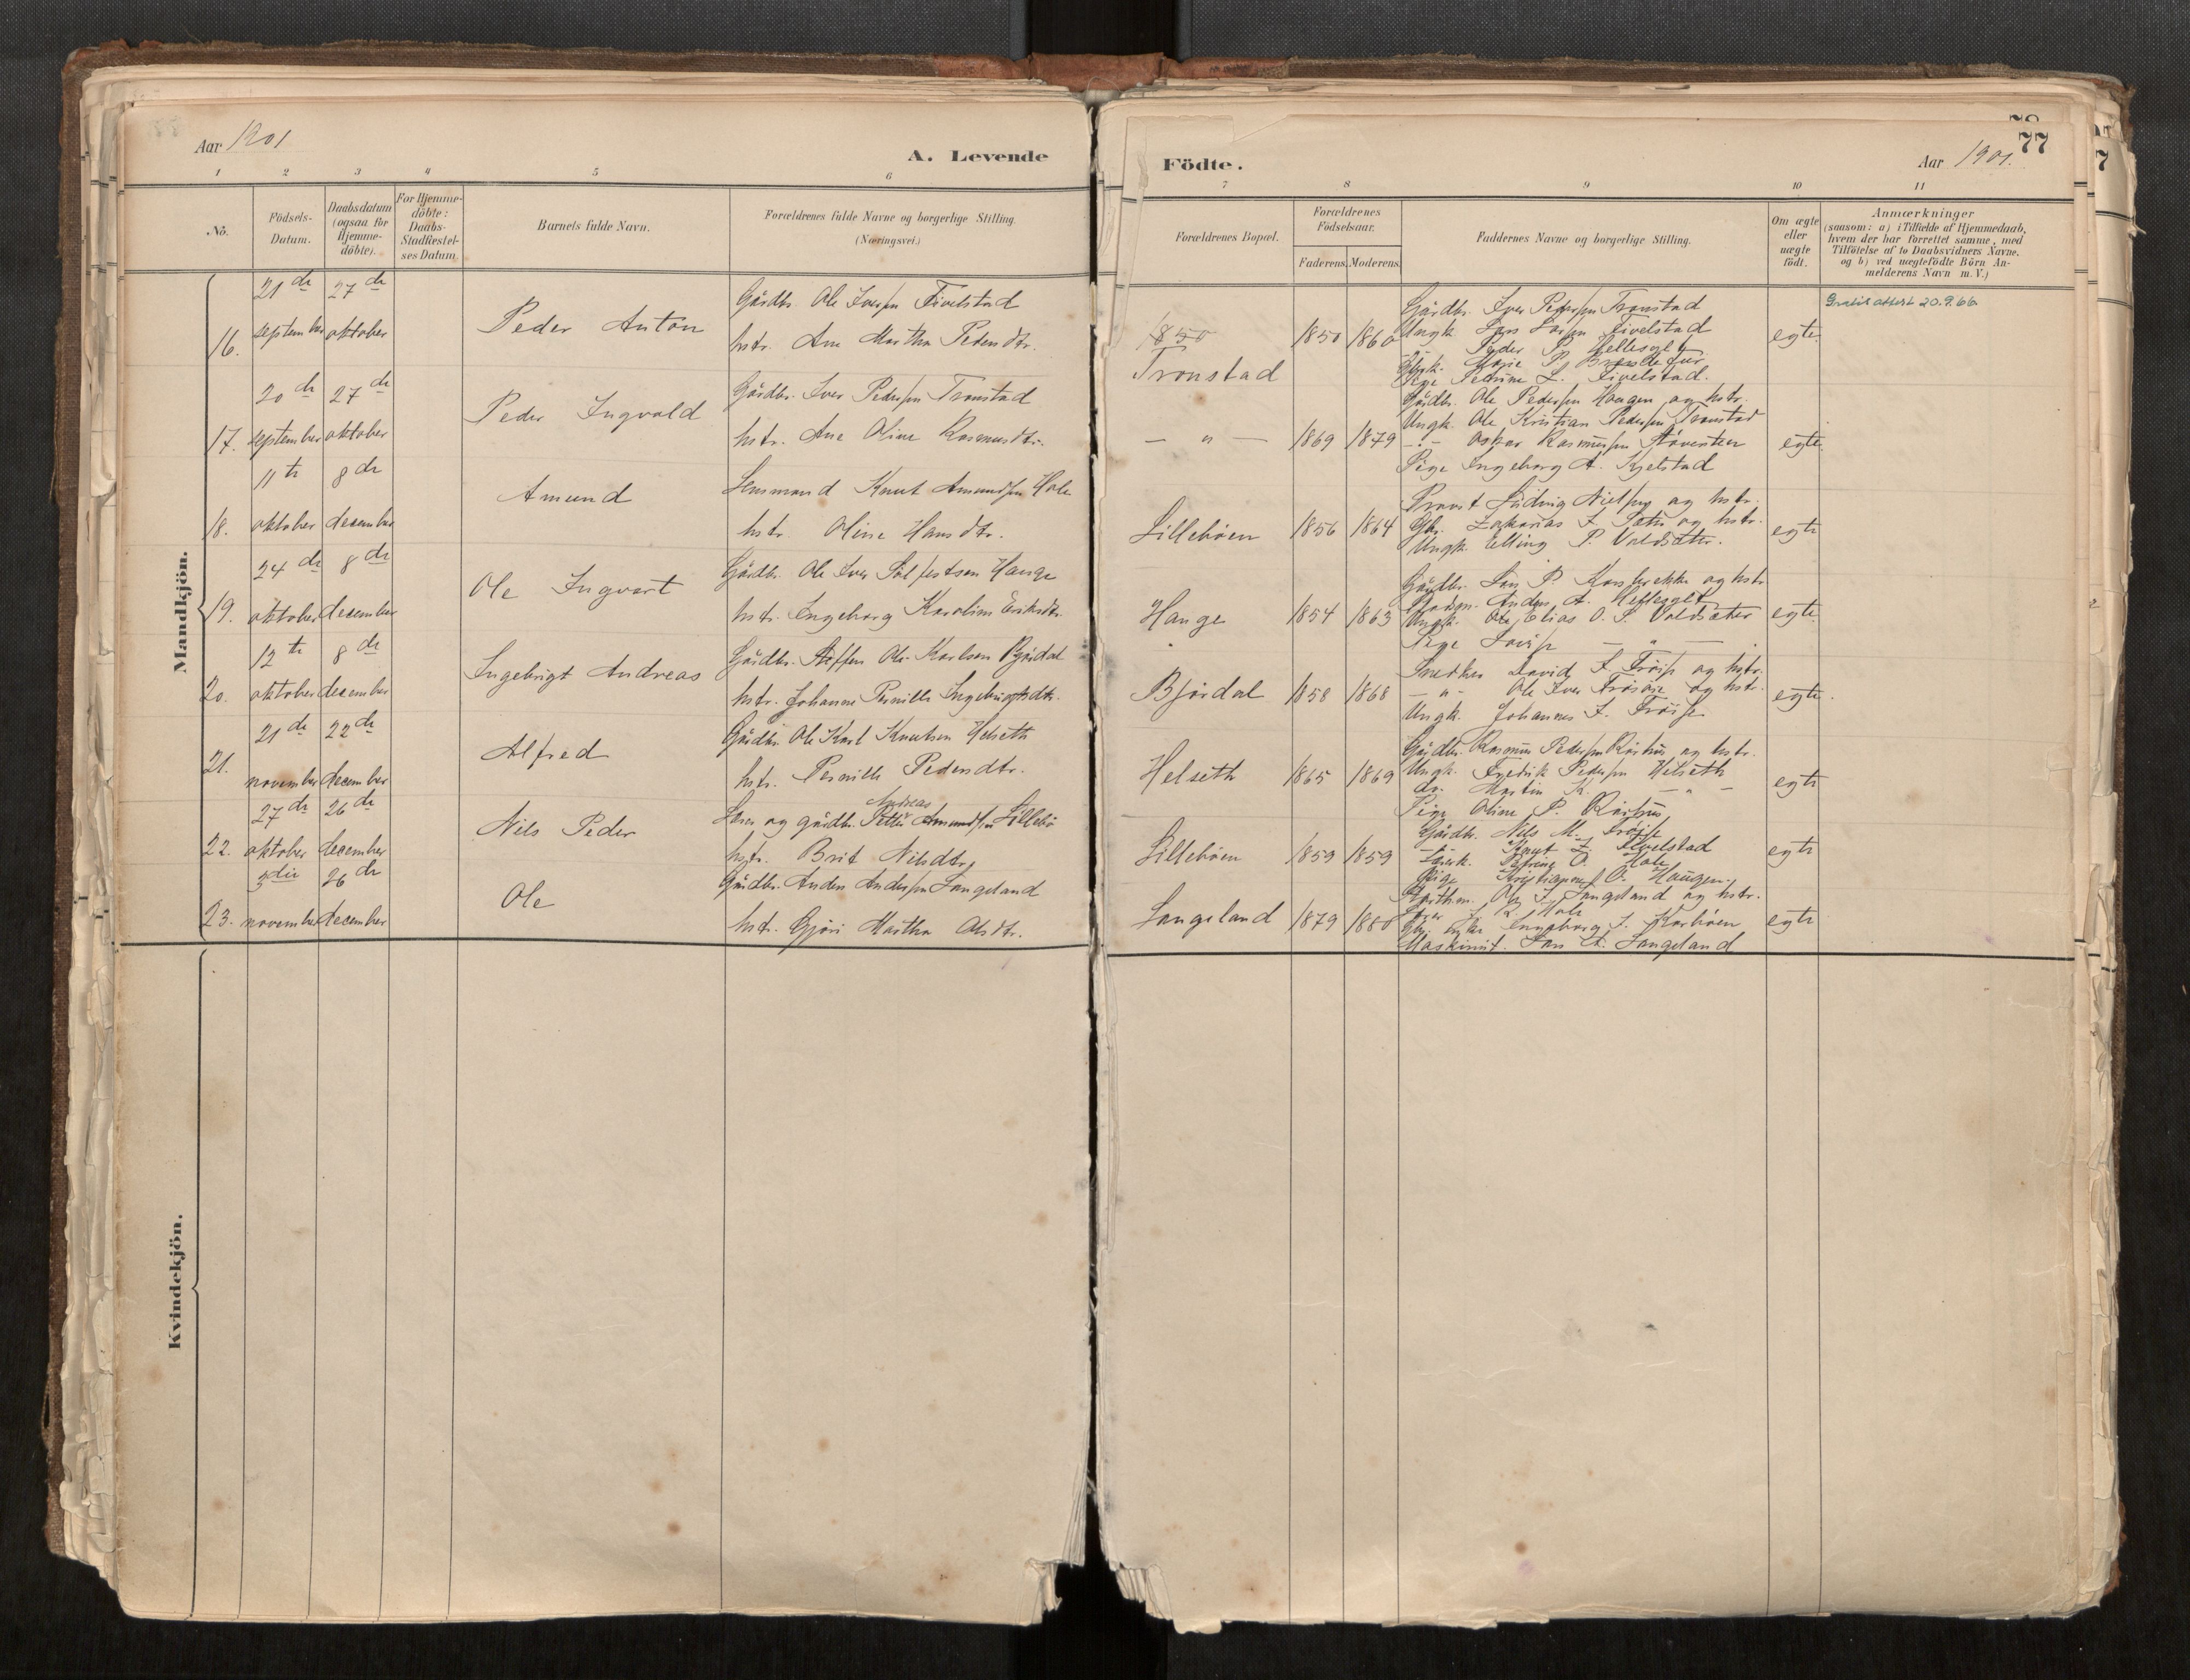 Aar 1901
A. Levende
1 2 3 4 5 6
Nö.
Födsels-Datum.
Daabsdatum (ogsaa for Hjemme-döbte).
For Hjemme-döbte: Daabs-Stadfæstel-ses Datum
Barnets fulde Navn.
Forældrenes fulde Navne og borgerlige Stilling.
(Næringsvei.)
Mandkjön.
16. 21de september 27de oktober Peder Anton
Gårdbr. Ole Iversen Fivelstad
hstr. Ane Martha Pedersdtr.
17. 20de september 27de oktober Peder Ingvald
Gårdbr. Iver Pedersen Tronstad
hstr. Ane Oline Rasmusdtr.
18. 11te oktober 8de december Amund
Lensmand Knut Amundsen Hole
hstr. Oline Hansdtr.
19. 24de oktober 8de december Ole Ingvart
Gårdbr. Ole Iver Sølfestsen Hauge
hstr. Ingeborg Karoline Eriksdtr.
20. 12te oktober 8de december Ingebrigt Andreas
Gårdbr. Steffen Ole Karlsen Bjørdal
hstr. Johanne Pernille Ingebrigtsdtr.
21. 21de november 22de december Alfred
Gårdbr. Ole Karl Knutsen Helseth
hstr. Pernille Pedersdtr.
22. 27de oktober 26de december Nils Peder
Andreas
Lærer og gårdbr. Petter Amundsen Lillebö
hstr. Brit Nilsdtr.
23. 3die november 26de december Ole
Gårdbr. Anders Andersen Langeland
hstr. Gjøri Martha Olsdtr.
Kvindekjön.
77
Födte.
Aar 1901.
7 8 9 10 11
Forældrenes Bopæl.
Forældrenes Födselsaar.
Faderens. Moderens.
Faddernes Navne og borgerlige Stilling.
Om ægte eller uægte födt.
Anmærkninger
(saasom: a) i Tilfælde af Hjemmedaab,
hvem der har forrettet samme, med
Tilföielse af to Daabsvidners Navne.
og b) ved uægtefödte Börn An-
melderens Navn m. V.)
1850
Tronstad 1850 1860
Gårdbr. Iver Pedersen Tronstad
Ungk. Lars Larsen Fivelstad
-"- Peder P. Hellesylt
Pige Petrine L. Fivelstad.
egte
Gratis attest 20.9.66
- " - 1869 1879
Gårdbr. Ole Pedersen Haugen og hstr.
Ungk. Ole Kristian Pedersen Tronstad
-"- Oskar Rasmussen
Pige Ingeborg A. Kjelstad
egte
Lillebøen 1856 1864
Provst Ludvig og hstr.
Gbr. Zakarias og hstr.
Ungk. Elling P. Voldsæter.
egte
Hauge 1854 1863
Gårdbr. Lars P. Korsbrekke og hstr.
Anders A. Hellesylt
Ungk. Ole Elias O. S. Voldsæter
Pige Lovise - " -
egte
Bjørdal 1858 1868
Snedker David I. Frøise og hstr.
- " - Ole Iver Frøise og hstr.
Ungk. Johannes I. Frøise
egte
Helseth 1865 1869
Gårdbr. Rasmus Pedersen Røshus og hstr.
Ungk. Fredrik Pedersen Helseth
do. Martin K. - " -
Pige Oline P. Røshus
egte
Lillebøen 1859 1859
Gårdbr. Nils M. Frøise
-"- Knut L. Fivelstad
Petrine O. Hole
Pige Kristianne O. Haugen.
egte
Langeland 1879 1880
Ole I. Langeland og hstr.
Lærer I. R. Hole
Ingeborg I. Korsbøen
Maskinist. Lars A. Langeland
egte